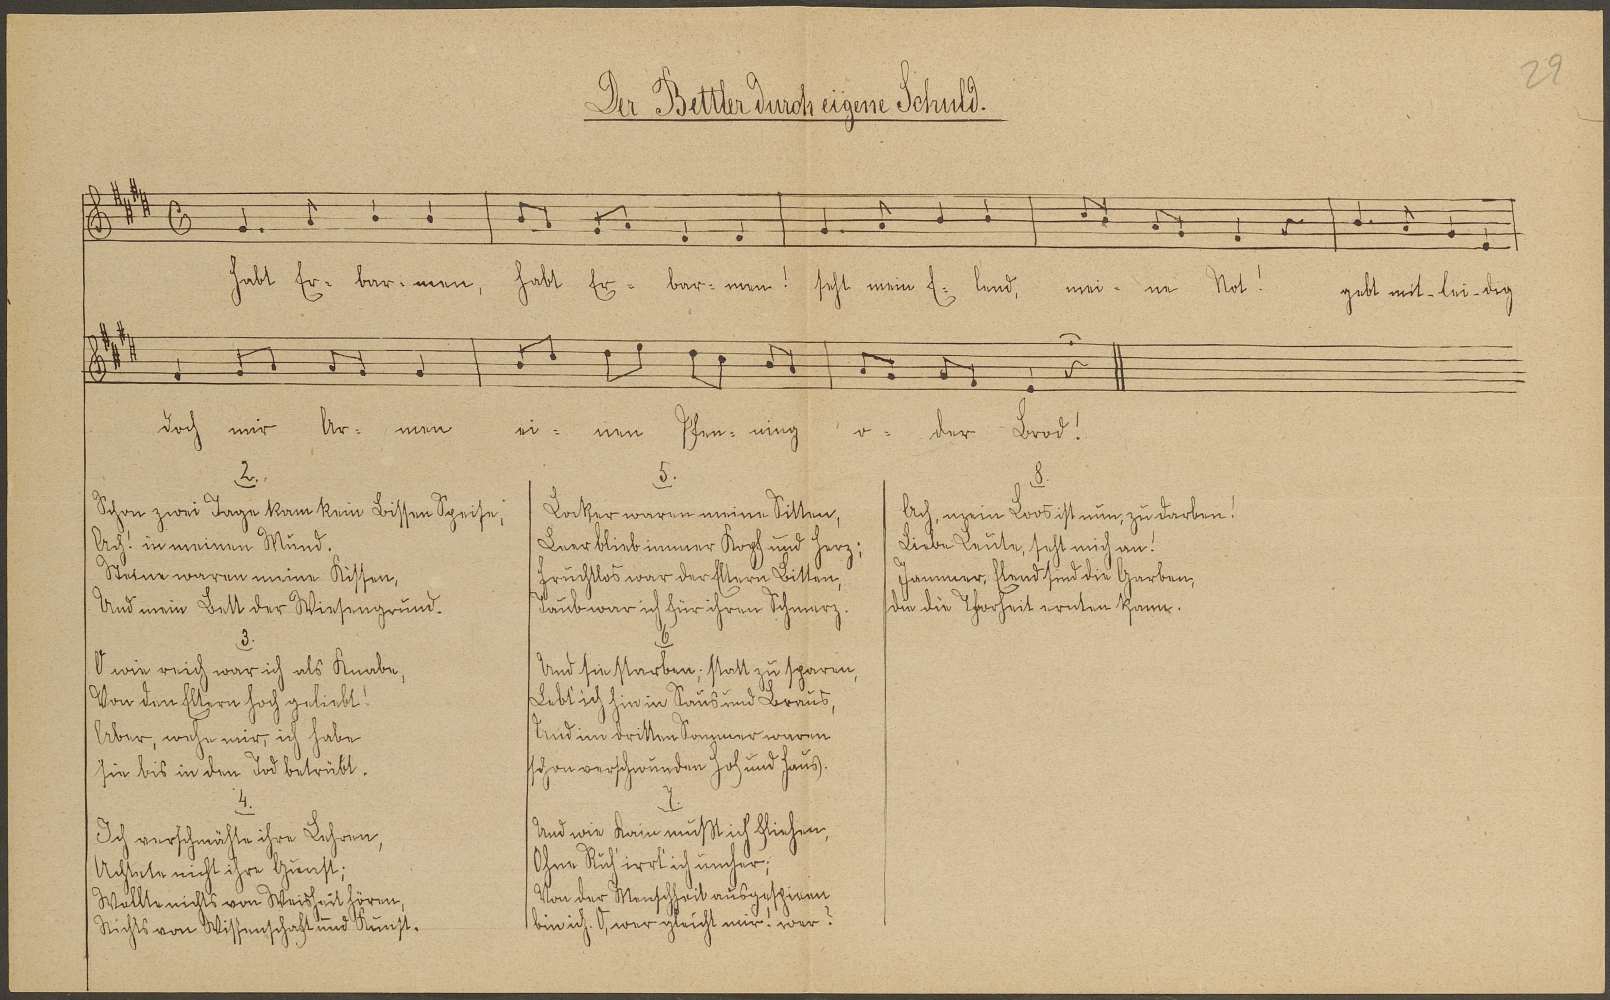 29
Der Bettler durch eigene Schuld.
Habt Er- bar- men, habt Er- bar- men! seht mein E- lend, mei- ne Not! gebt mit- lei- dig
doch mir Ar- men ei- nen Pfen- ning o- der Brod!
2.
Schon zwei Tage kam kein Bissen Speise;
Ach! in meinen Mund.
Steine waren meine Kissen,
Und mein Bett der Wiesengrund.
3.
O wie reich war ich als Knabe,
Von den Eltern hoch geliebt!
Aber, wehe mir, ich habe
sie bis in den Tod betrübt.
4.
Ich verschmähte ihre Lehren,
Achtete nicht ihre Gunst;
Wollte nichts von Weisheit hören,
Nichts von Wissenschaft und Kunst.
5.
Locker waren meine Sitten,
Leer blieb immer Kopf und Herz;
Fruchtlos war der Eltern Bitten,
Taub war ich für ihren Schmerz.
6
Und sie starben; statt zu sparen,
Lebt' ich hin in Saus und Braus,
Und im dritten Sommer waren
schon verschwunden Hof und Haus.
7.
Und wie Kain mußt ich fliehen,
Ohne Ruh' irrt' ich umher;
Von der Menschheit ausgespieen
bin ich. O, wer gleicht mir! wer?
8.
Ach, mein Loos ist nun, zu darben!
Liebe Leute, seht mich an!
Jammer, Elend sind die Garben,
die die Thorheit ernten kann.